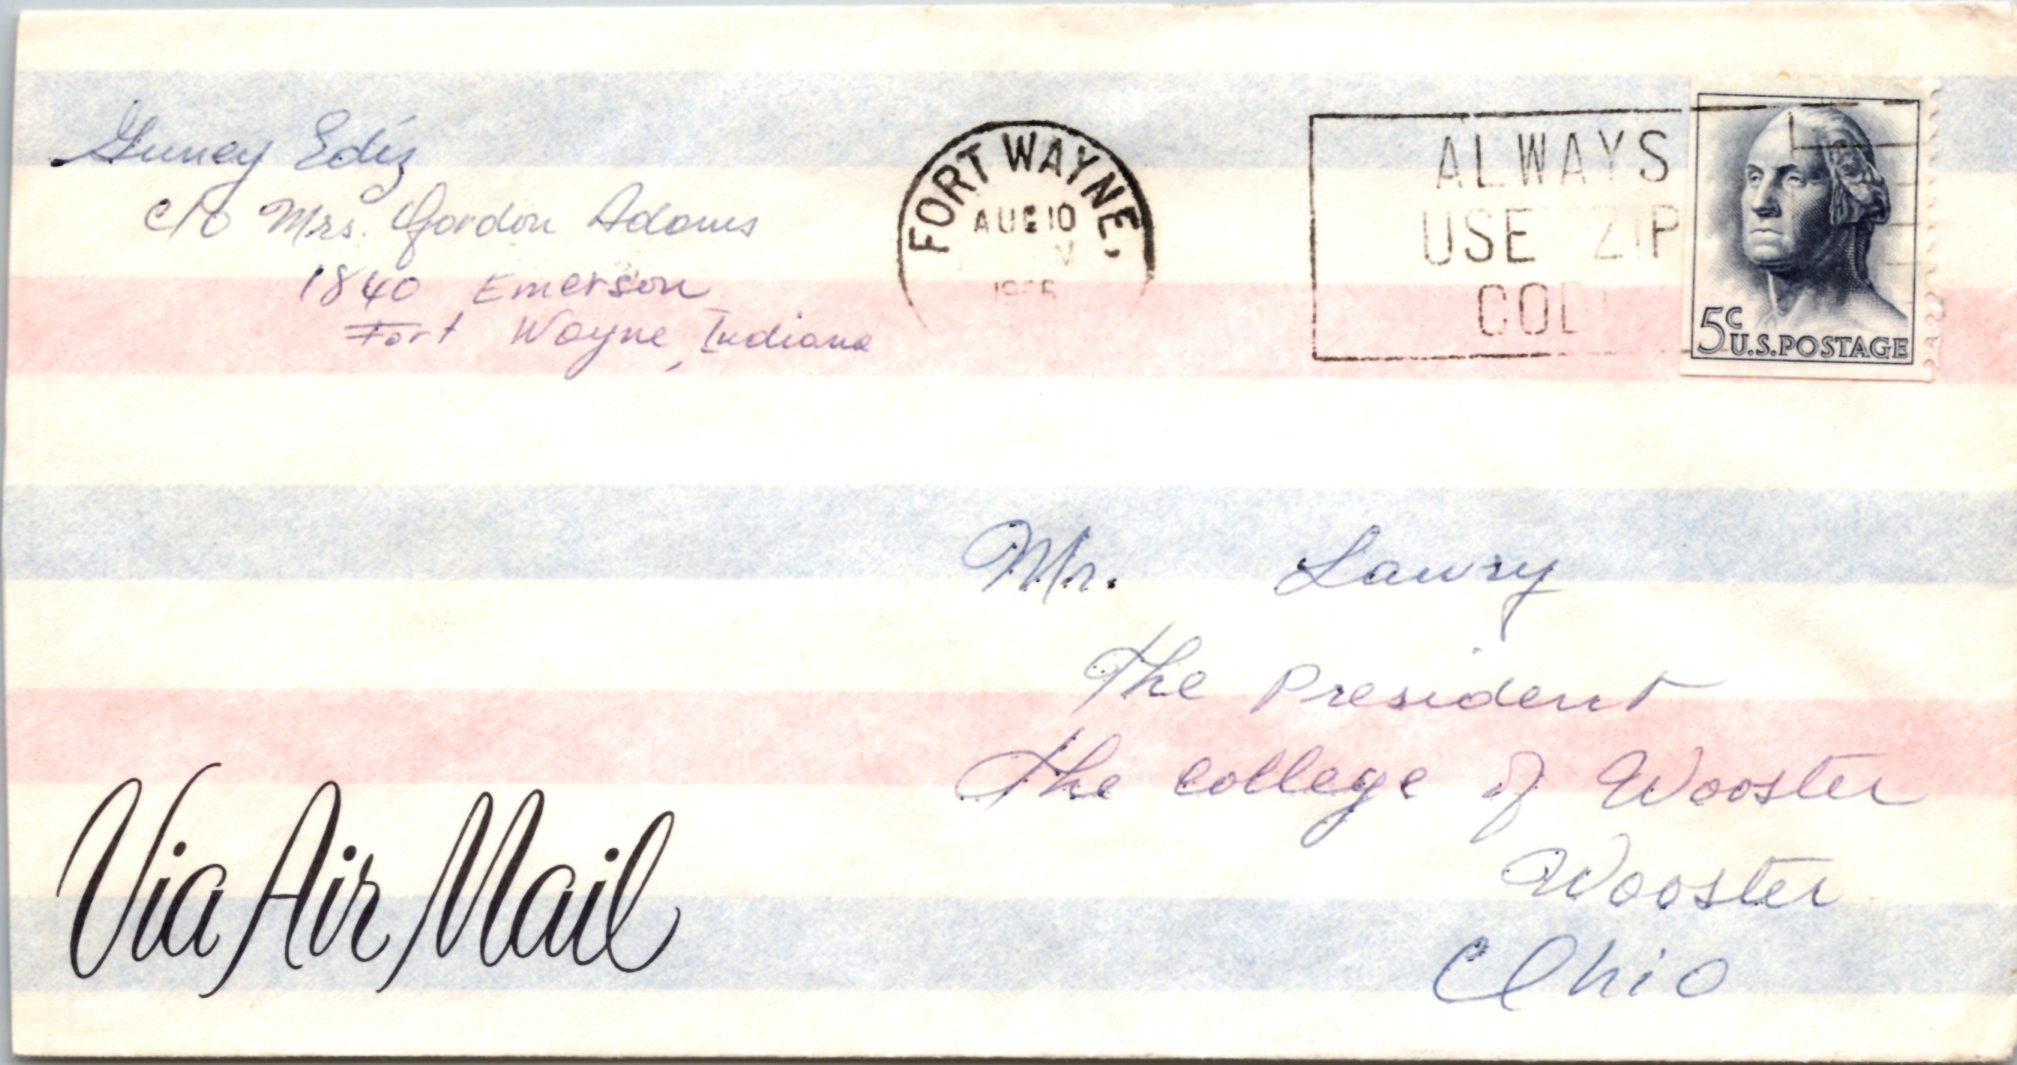 Guney Ediz
c/o Mrs. Gordon Adams
1840 Emerson
Fort Wayne, Indiana
FORT WAYNE,
AUG 10
ALWAYS
USE ZIP
5c
U.S.POSTAGE
Mr. Lawry
The President
The college of Wooster
Wooster
Ohio
Via Air Mail